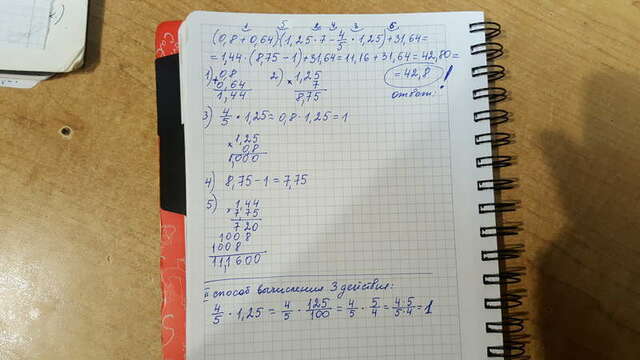 1 5 2 4 3 6
(0,8+0,64)(1,25·7-4/5·1,25)+31,64=
=1,44·(8,75-1)+31,64=11,16+31,64=42,80=
=42,8
ответ!
1) +0,8
0,64
1,44
2) ×1,25
7
8,75
3) 4/5·1,25=0,8·1,25=1
×1,25
0,8
1,000
4) 8,75-1=7,75
5) ×1,44
7,75
720
1008
1008
11,1600
II способ вычисления 3 действия:
4/5·1,25=4/5·125/100=4/5·5/4=4·5/5·4=1